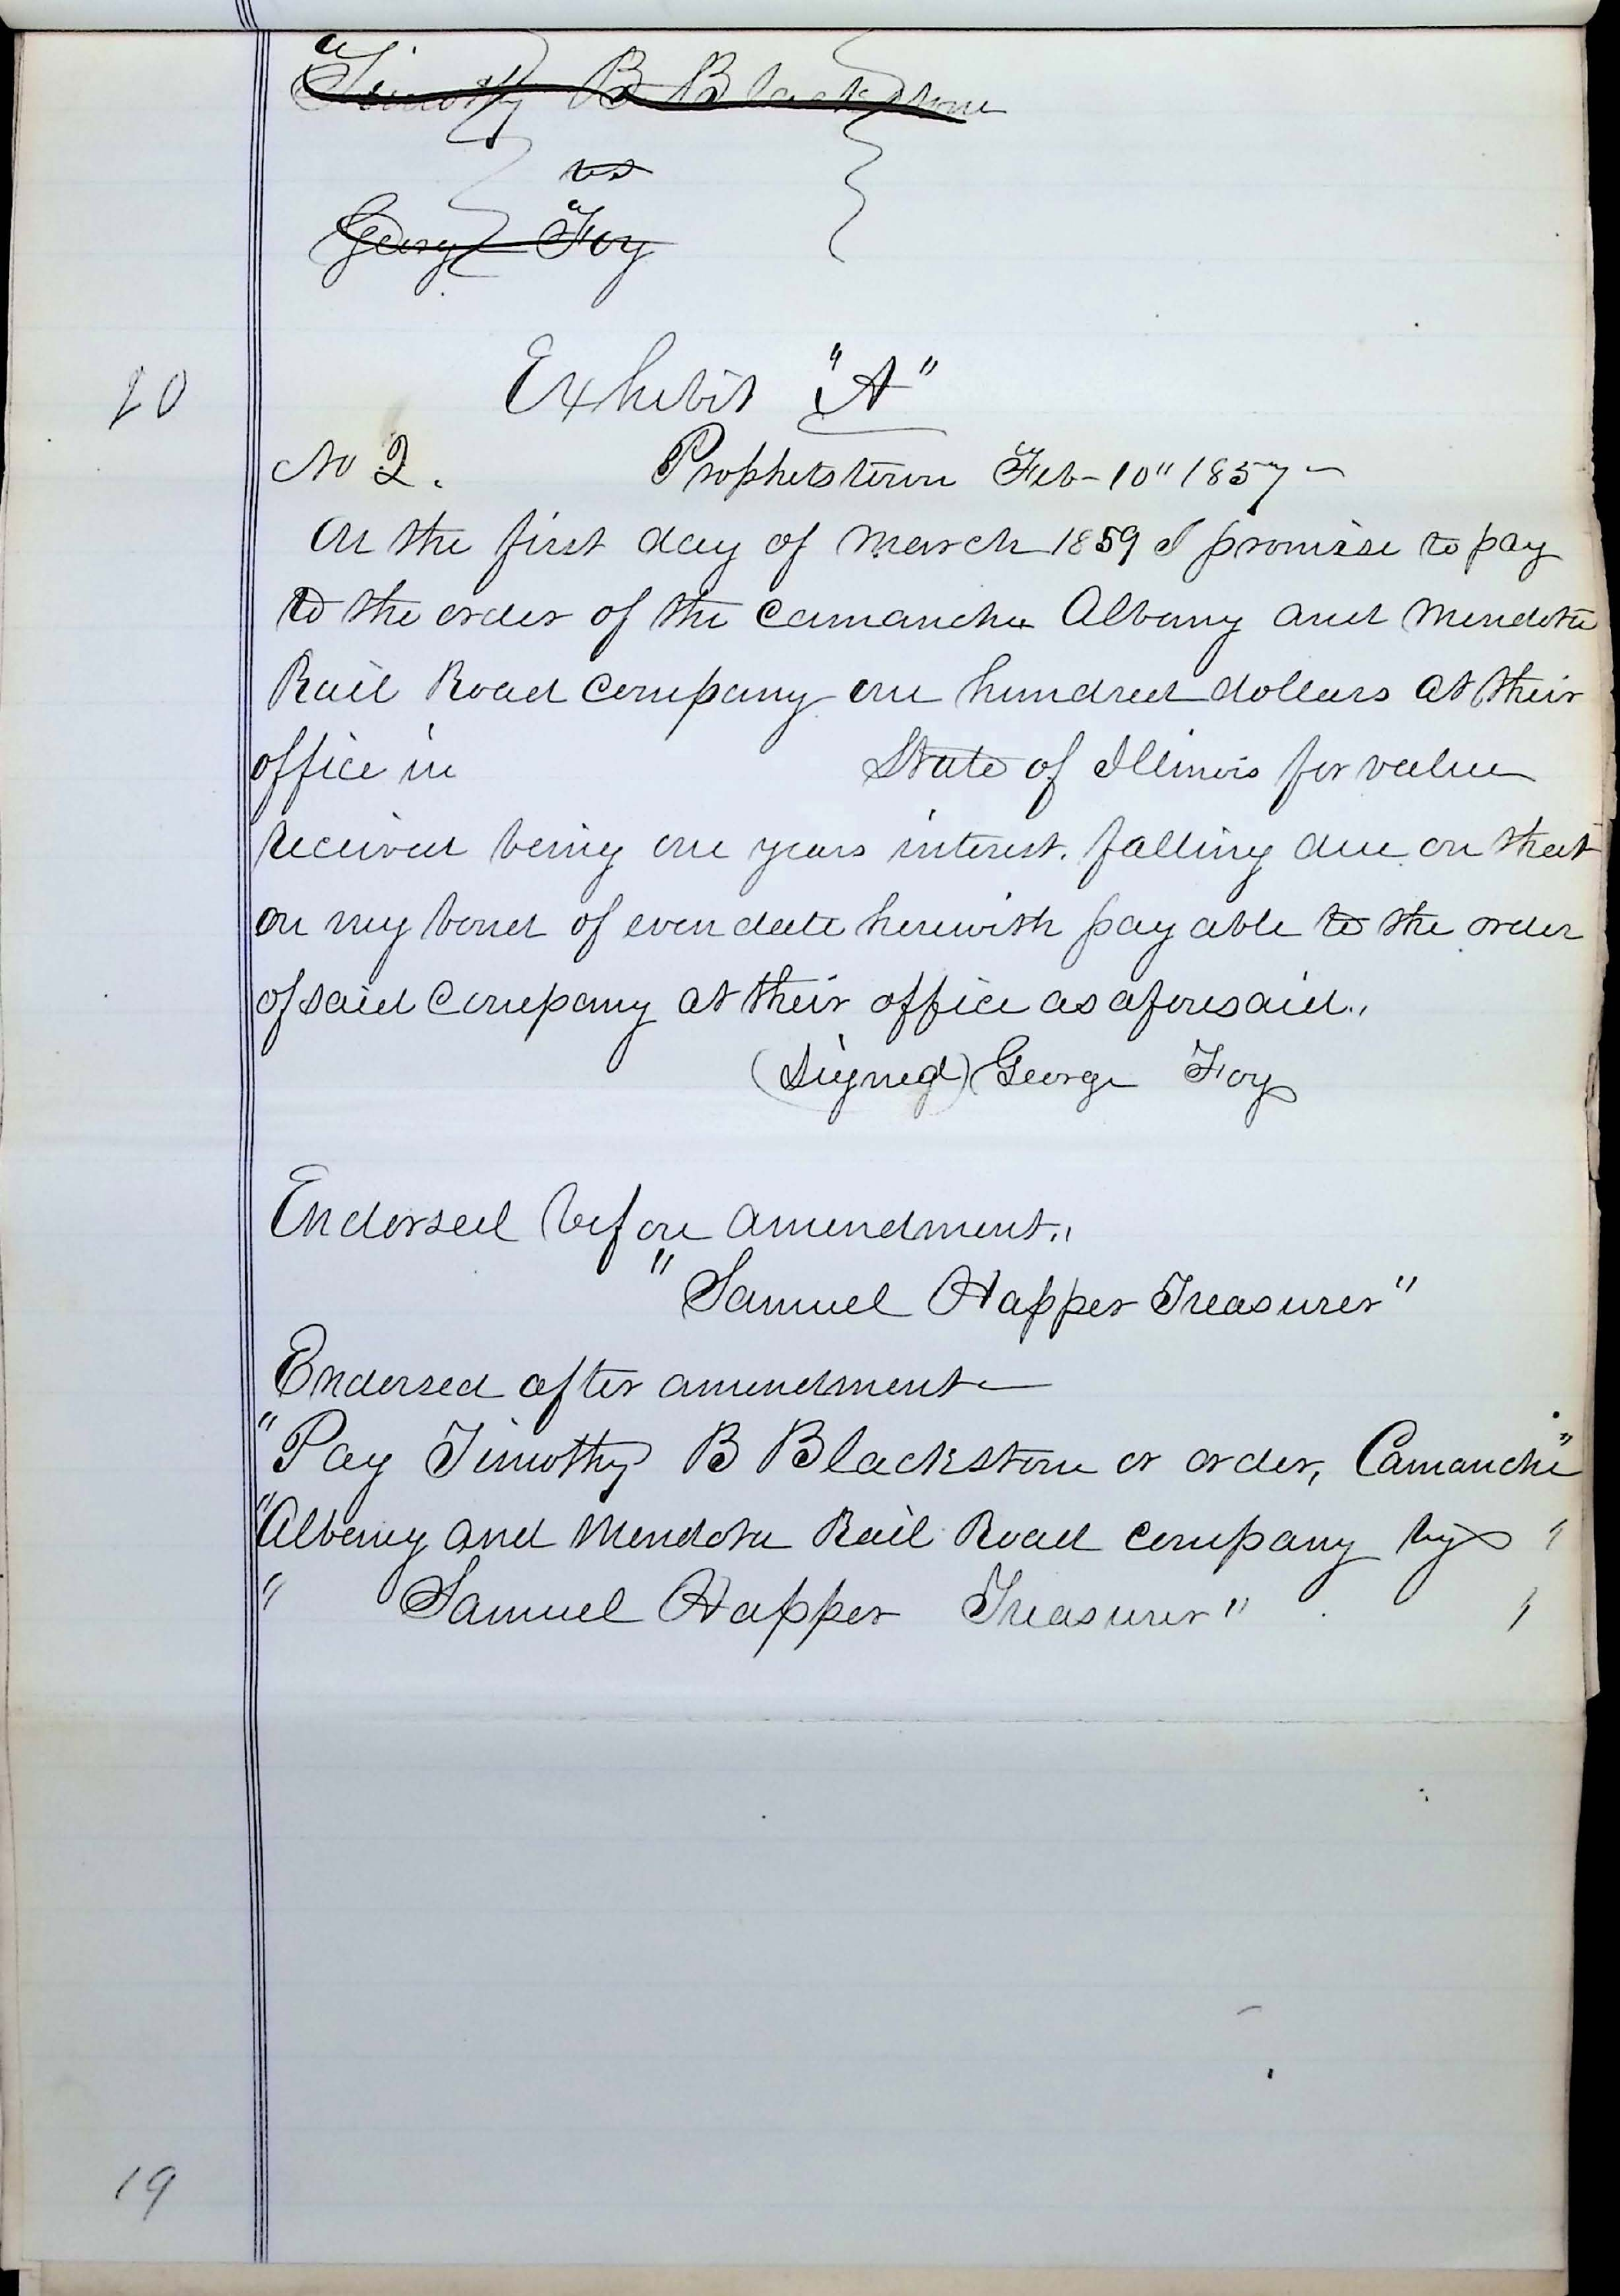 Timothy B Blackstone
vs
George Foy
20
Exhibit "A"
No 2. Prophetstown Feb-10" 1857
On the first day of March 1859 I promise to pay
to the order of the Camanche Albany and Mendota
Rail Road Company one hundred dollars at their
office in State of Illinois for value
received being one years interest. falling due on that
on my bond of even date herewith payable to the order
of said Company at their office as aforesaid.,
(Signed) George Foy
Endorsed before amendment.,
"Samuel Happer Treasurer"
Endorsed after amendment
"Pay Timothy B Blackstone or order, Camanche"
"Albany and Mendota Rail Road company by "
" Samuel Happer Treasurer" "
19